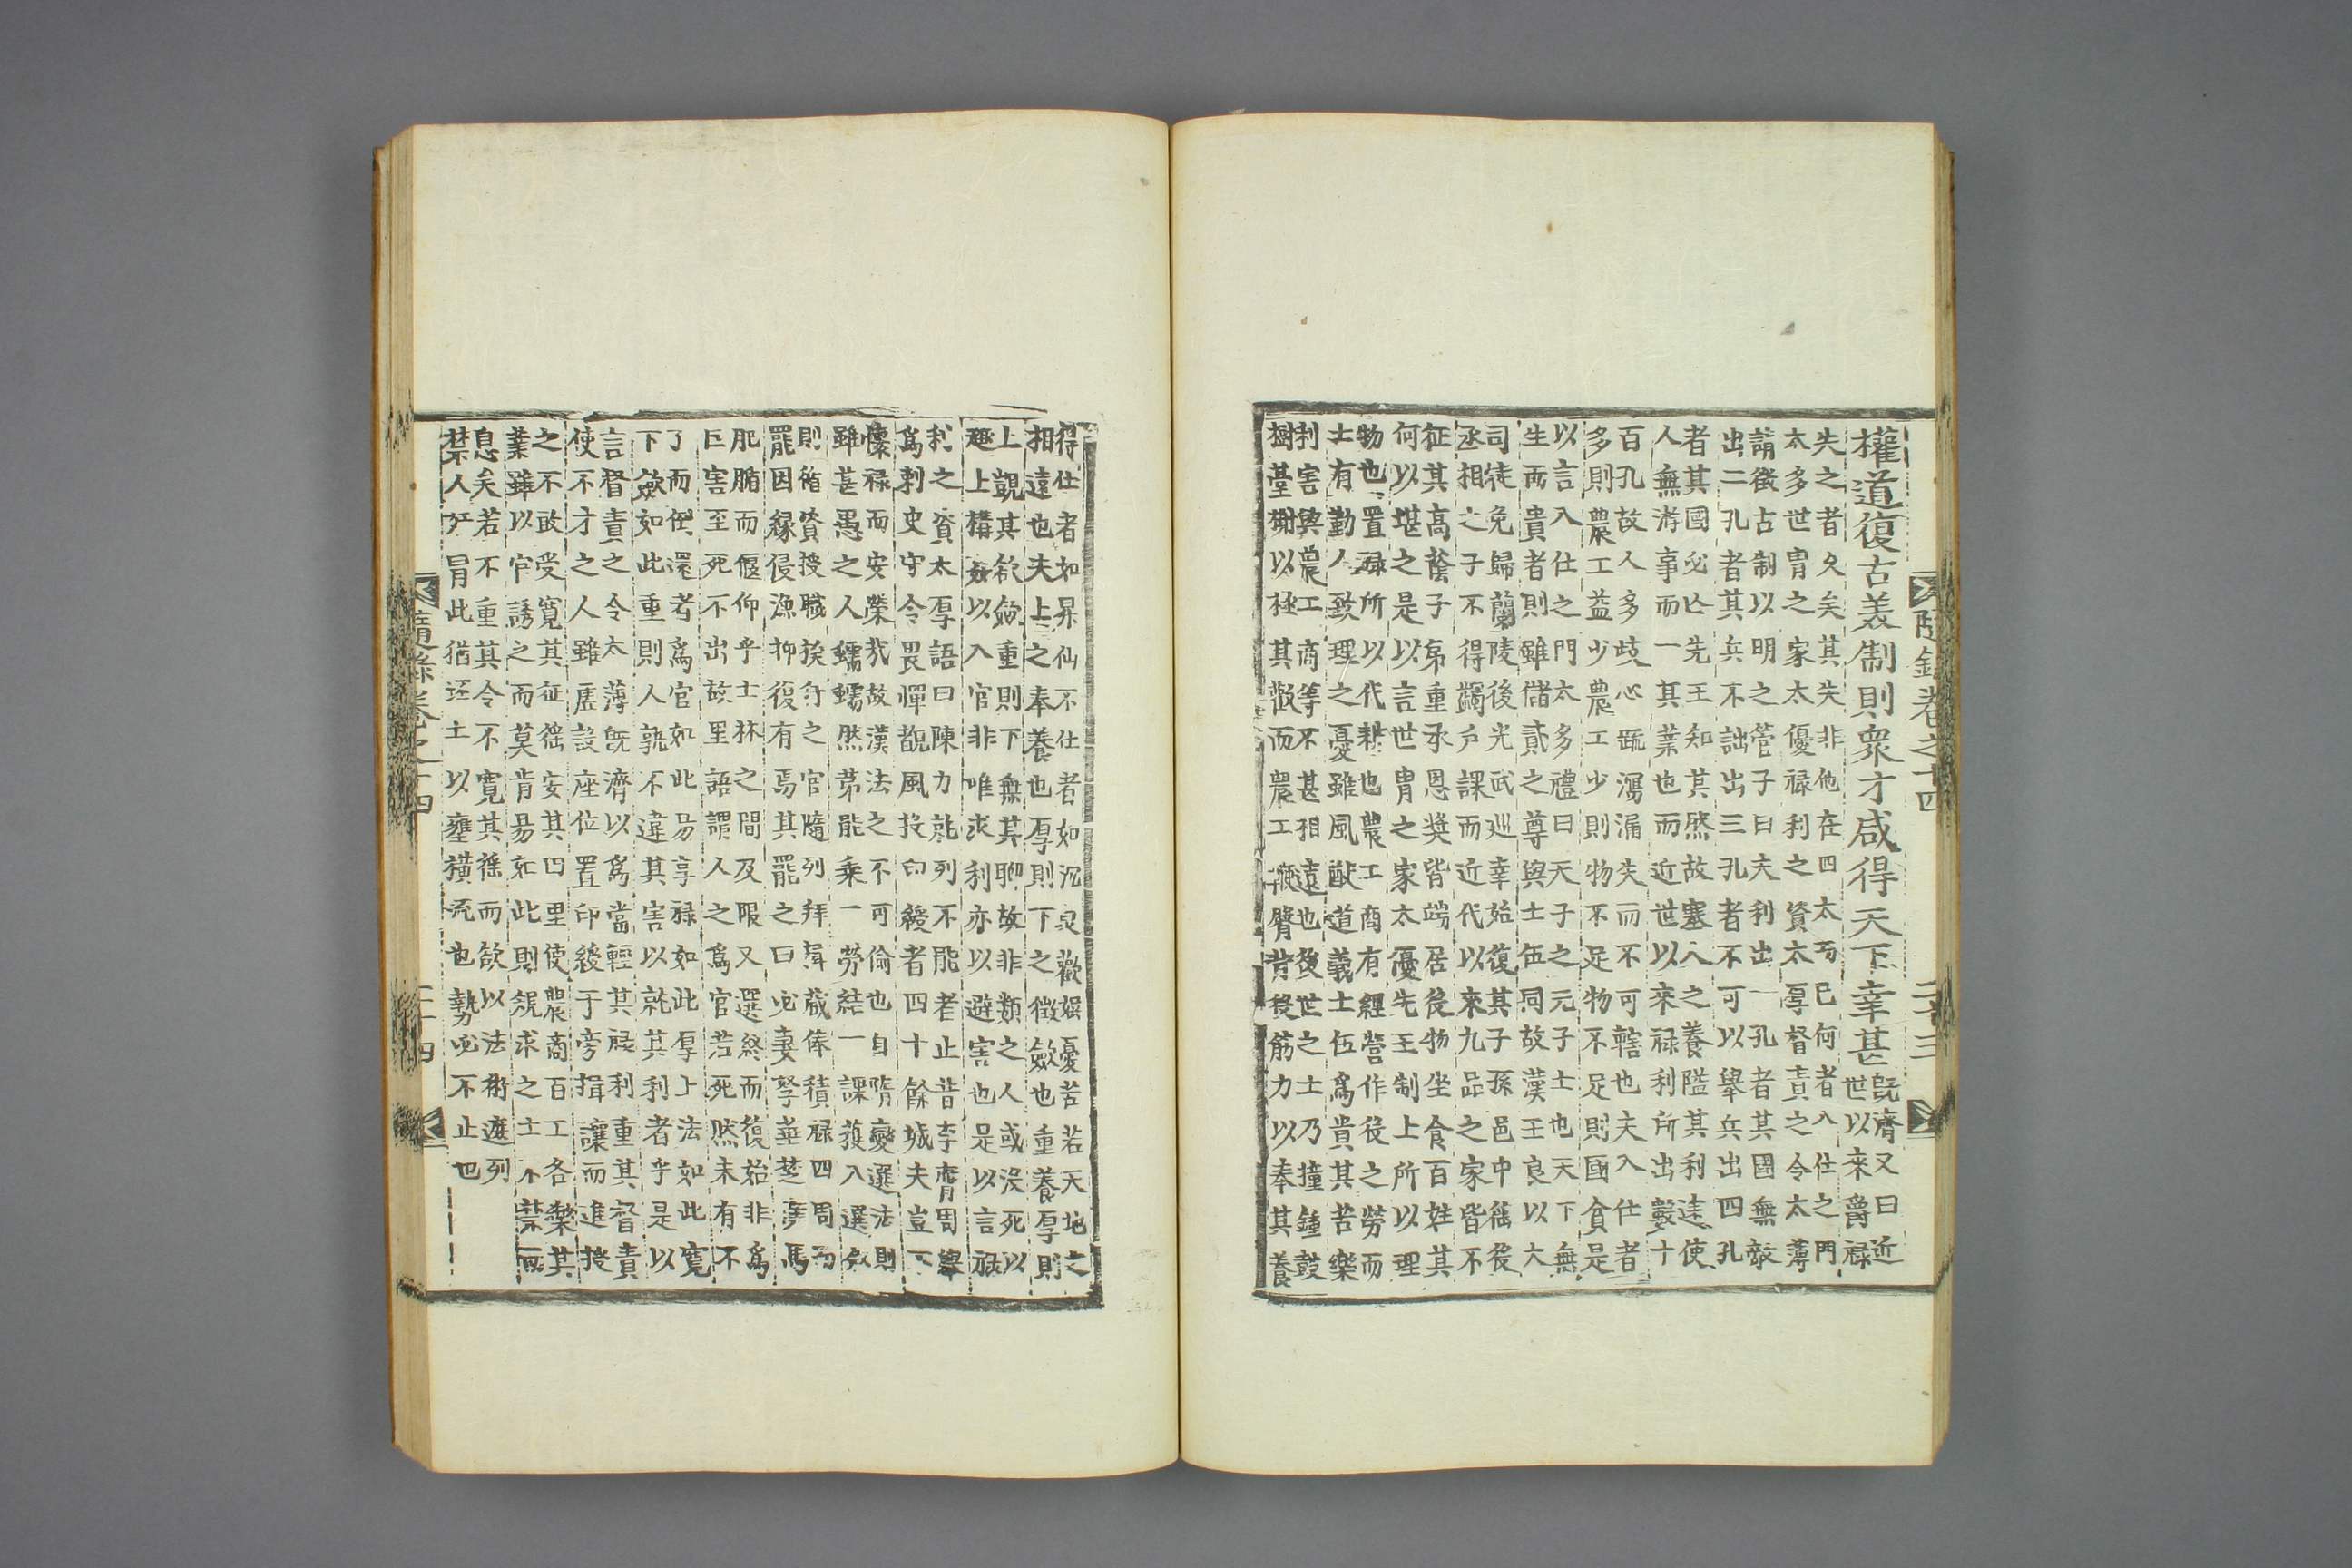 隨錄卷之十四 二十三
權道復古美制則衆才咸得天下幸甚旣濟又曰近
世以來爵祿
失之者久矣其失非他在四太而已何者入仕之門
太多世胄之家太優祿利之資太厚督責之令太薄
請徵古制以明之管子曰夫利出一孔者其國無敵
出二孔者其兵不詘出三孔者不可以擧兵出四孔
者其國必亡先王知其然故塞人之養隘其利途使
人無游事而一其業也而近世以來祿利所出數十
百孔故人多歧心疏瀉漏失而不可轄也夫入仕者
多則農工益少農工少則物不足物不足則國貧是
以言入仕之門太多禮曰天子之元子士也天下無
生而貴者則雖儲貳之尊與士伍同故漢王良以大
司徒免歸蘭陵後光武巡幸始復其子孫邑中徭役
丞相之子不得蠲戶課而近代以來九品之家皆不
征其高蔭子弟重承恩奬皆端居役物坐食百姓其
何以堪之是以言世胄之家太優先王制上所以理
物也置祿所以代耕也農工商有經營作役之勞而
士有勤人致理之憂雖風猷道義士伍爲貴其苦樂
利害與農工商等不甚相遠也後世之士乃撞鍾鼓
樹臺榭以極其歡而農工鞭臀背役筋力以奉其養
得仕者如昇仙不仕者如沉泉歡娛憂苦若天地之
相遠也夫上之奉養也厚則下之徵斂也重養厚則
上覬其欲斂重則下無其聊故非類之人或沒死以
趣上構姦以入官非唯求利亦以避害也是以言祿
利之資太厚語曰陳力就列不能者止昔李膺周擧
爲刺史守令畏憚覩風投印綬者四十餘城夫豈不
懷祿而安榮哉故漢法之不可偸也自隋變選法則
雖甚愚之人蠕蠕然第能乘一勞結一課獲入選敘
則循資授職族行之官隨列拜揖藏俸積祿四周而
罷因緣侵漁抑復有焉其罷之日必妻孥華楚僕馬
肥腯而偃仰乎士林之間及限又選終而復始非爲
巨害至死不出故里語謂人之爲官若死然未有不
了而倒還者爲官如此易享祿如此厚上法如此寬
下斂如此重則人孰不違其害以就其利者乎是以
言督責之令太薄旣濟以爲當輕其祿利重其督責
使不才之人雖虛設座位置印綬于旁揖讓而進授
之不敢受寬其征徭安其田里使農商百工各樂其
業雖以官誘之而莫肯易如此則規求之士不禁而
息矣若不重其令不寬其徭而欲以法術遮列
禁人奸冒此猶坯土以壅橫流也勢必不止也
隨錄卷之十四 二十四